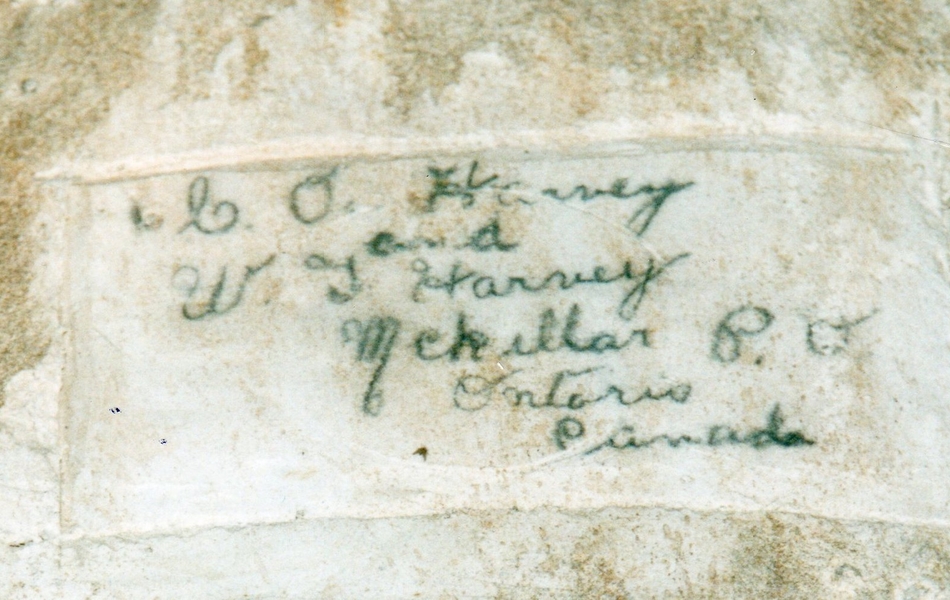 C. O. Harvey
and
W. J Harvey
Mckellar P. O
Ontario
Canada